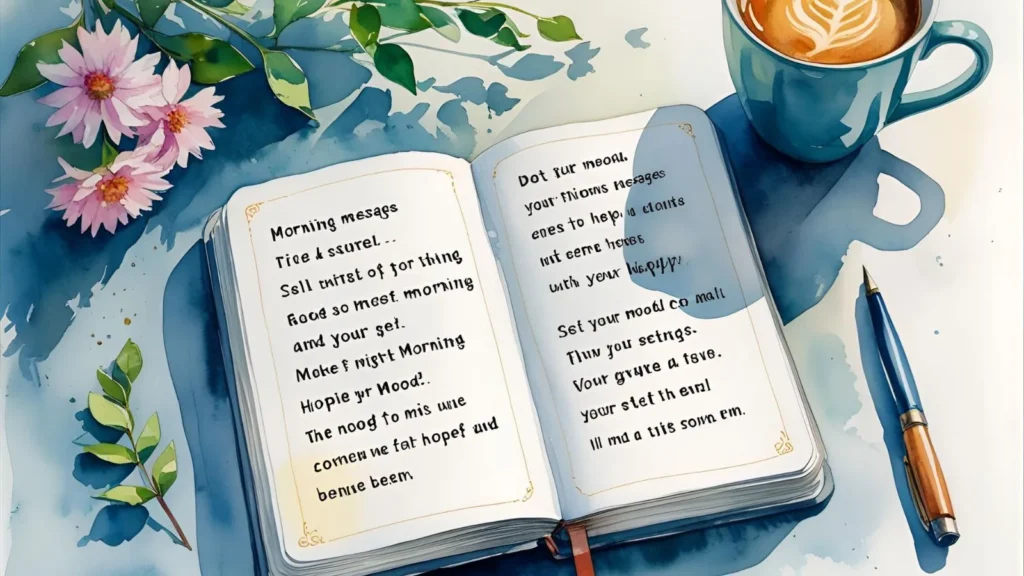 Morning mesags
Tire & ssurel...
Sell mirst of for thing
Good so mest. morning
amd your gel.
Make f night Morning
Hiople yr Mood!.
The noog To mis une
comen we fat hopef and
benue beem
Dot yur meoal.
your Thioms Mesages
enes to hep, a clonts
eme hows
with your
Set your mood co mali
Thw you setngs.
Vour grvre a fave.
your stet th enl
Ill md a tits som em.